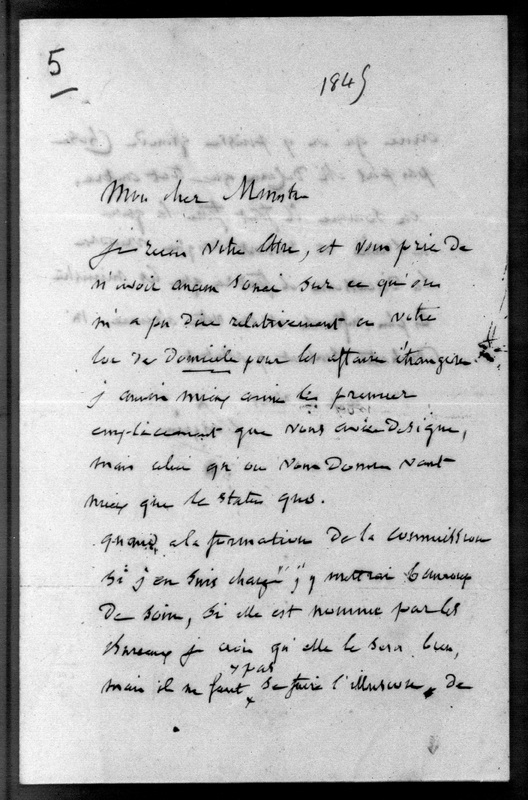 5
1845
Mon cher Ministre
Je reçois votre lettre, et vous prie de
n'avoir aucun souci sur ce qu'on
m'a pu dire relativement a votre
loi de domicile pour les affaires étrangères.
j'aurais mieux aimé le premier
emplacement que vous aviez designe,
mais celui qu'on vous donne vaut
mieux que le statu quo.
quand a la formation de la commission
si j'en suis chargé j'y mettrai beaucoup
de soin, si elle est nommée par les
bureaux je crois qu'elle le sera bien,
mais il ne faut pas se faire l'illusion, de